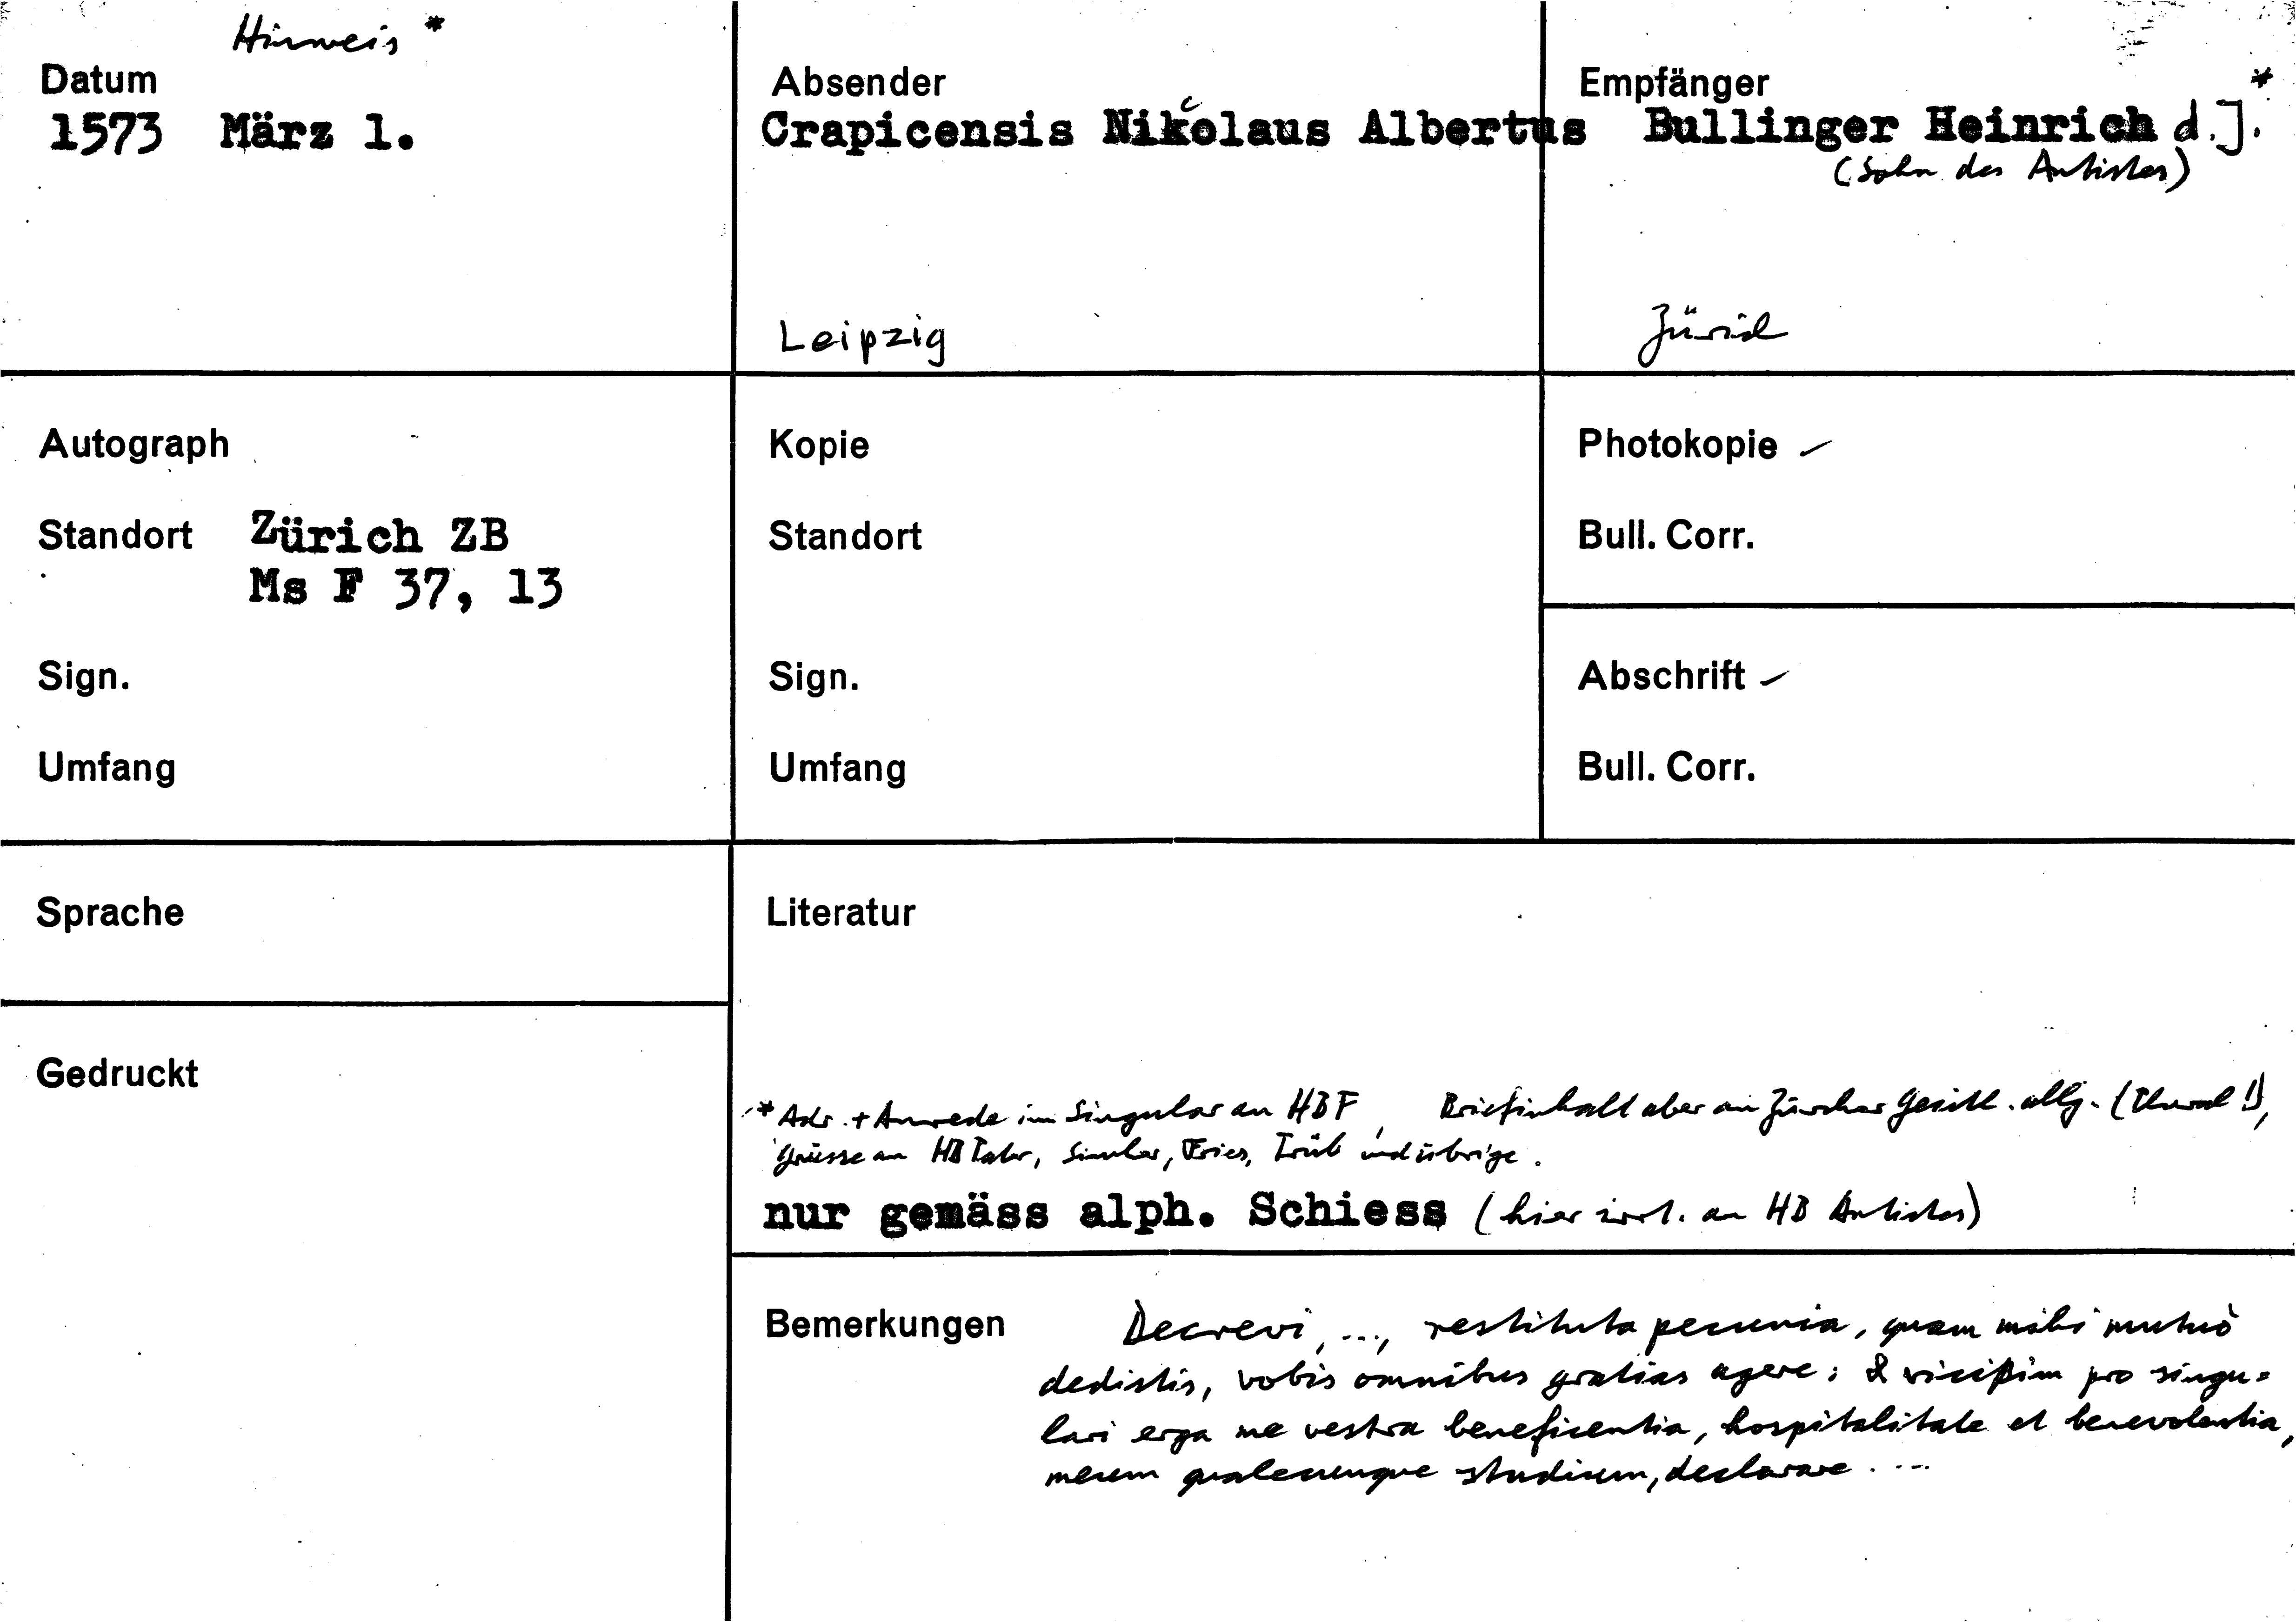 Hinweis *
Datum
1573 März 1.
Absender
Crapicensis Nikolaus Albertus
c
Leipzig
Empfänger *
Bullinger Heinrich d. J.
(Sohn des Antistes)
Zürich
Autograph
Standort Zürich ZB
Ms F 37, 13
Sign.
Umfang
Kopie
Standort
Sign.
Umfang
Photokopie ✓
Bull. Corr.
Abschrift ✓
Bull. Corr.
Sprache
Gedruckt
Literatur
* Adr. + Anrede im Singular an HBF, Briefinhalt aber an Zürcher Geistl. allg. (Plural!),
Grüsse an HB Vater, Simler, Fries, Trüb und übrige.
nur gemäss alph. Schiess (hier irrt. an HB Antistes)
Bemerkungen
Decrevi, ..., restituta pecunia, quam mihi mutuò
dedistis, vobis omnibus gratias agere: & vicißim pro singu=
lari erga me vestra beneficentia, hospitalitate et benevolentia,
meum qualecunque studium, declarare. ...